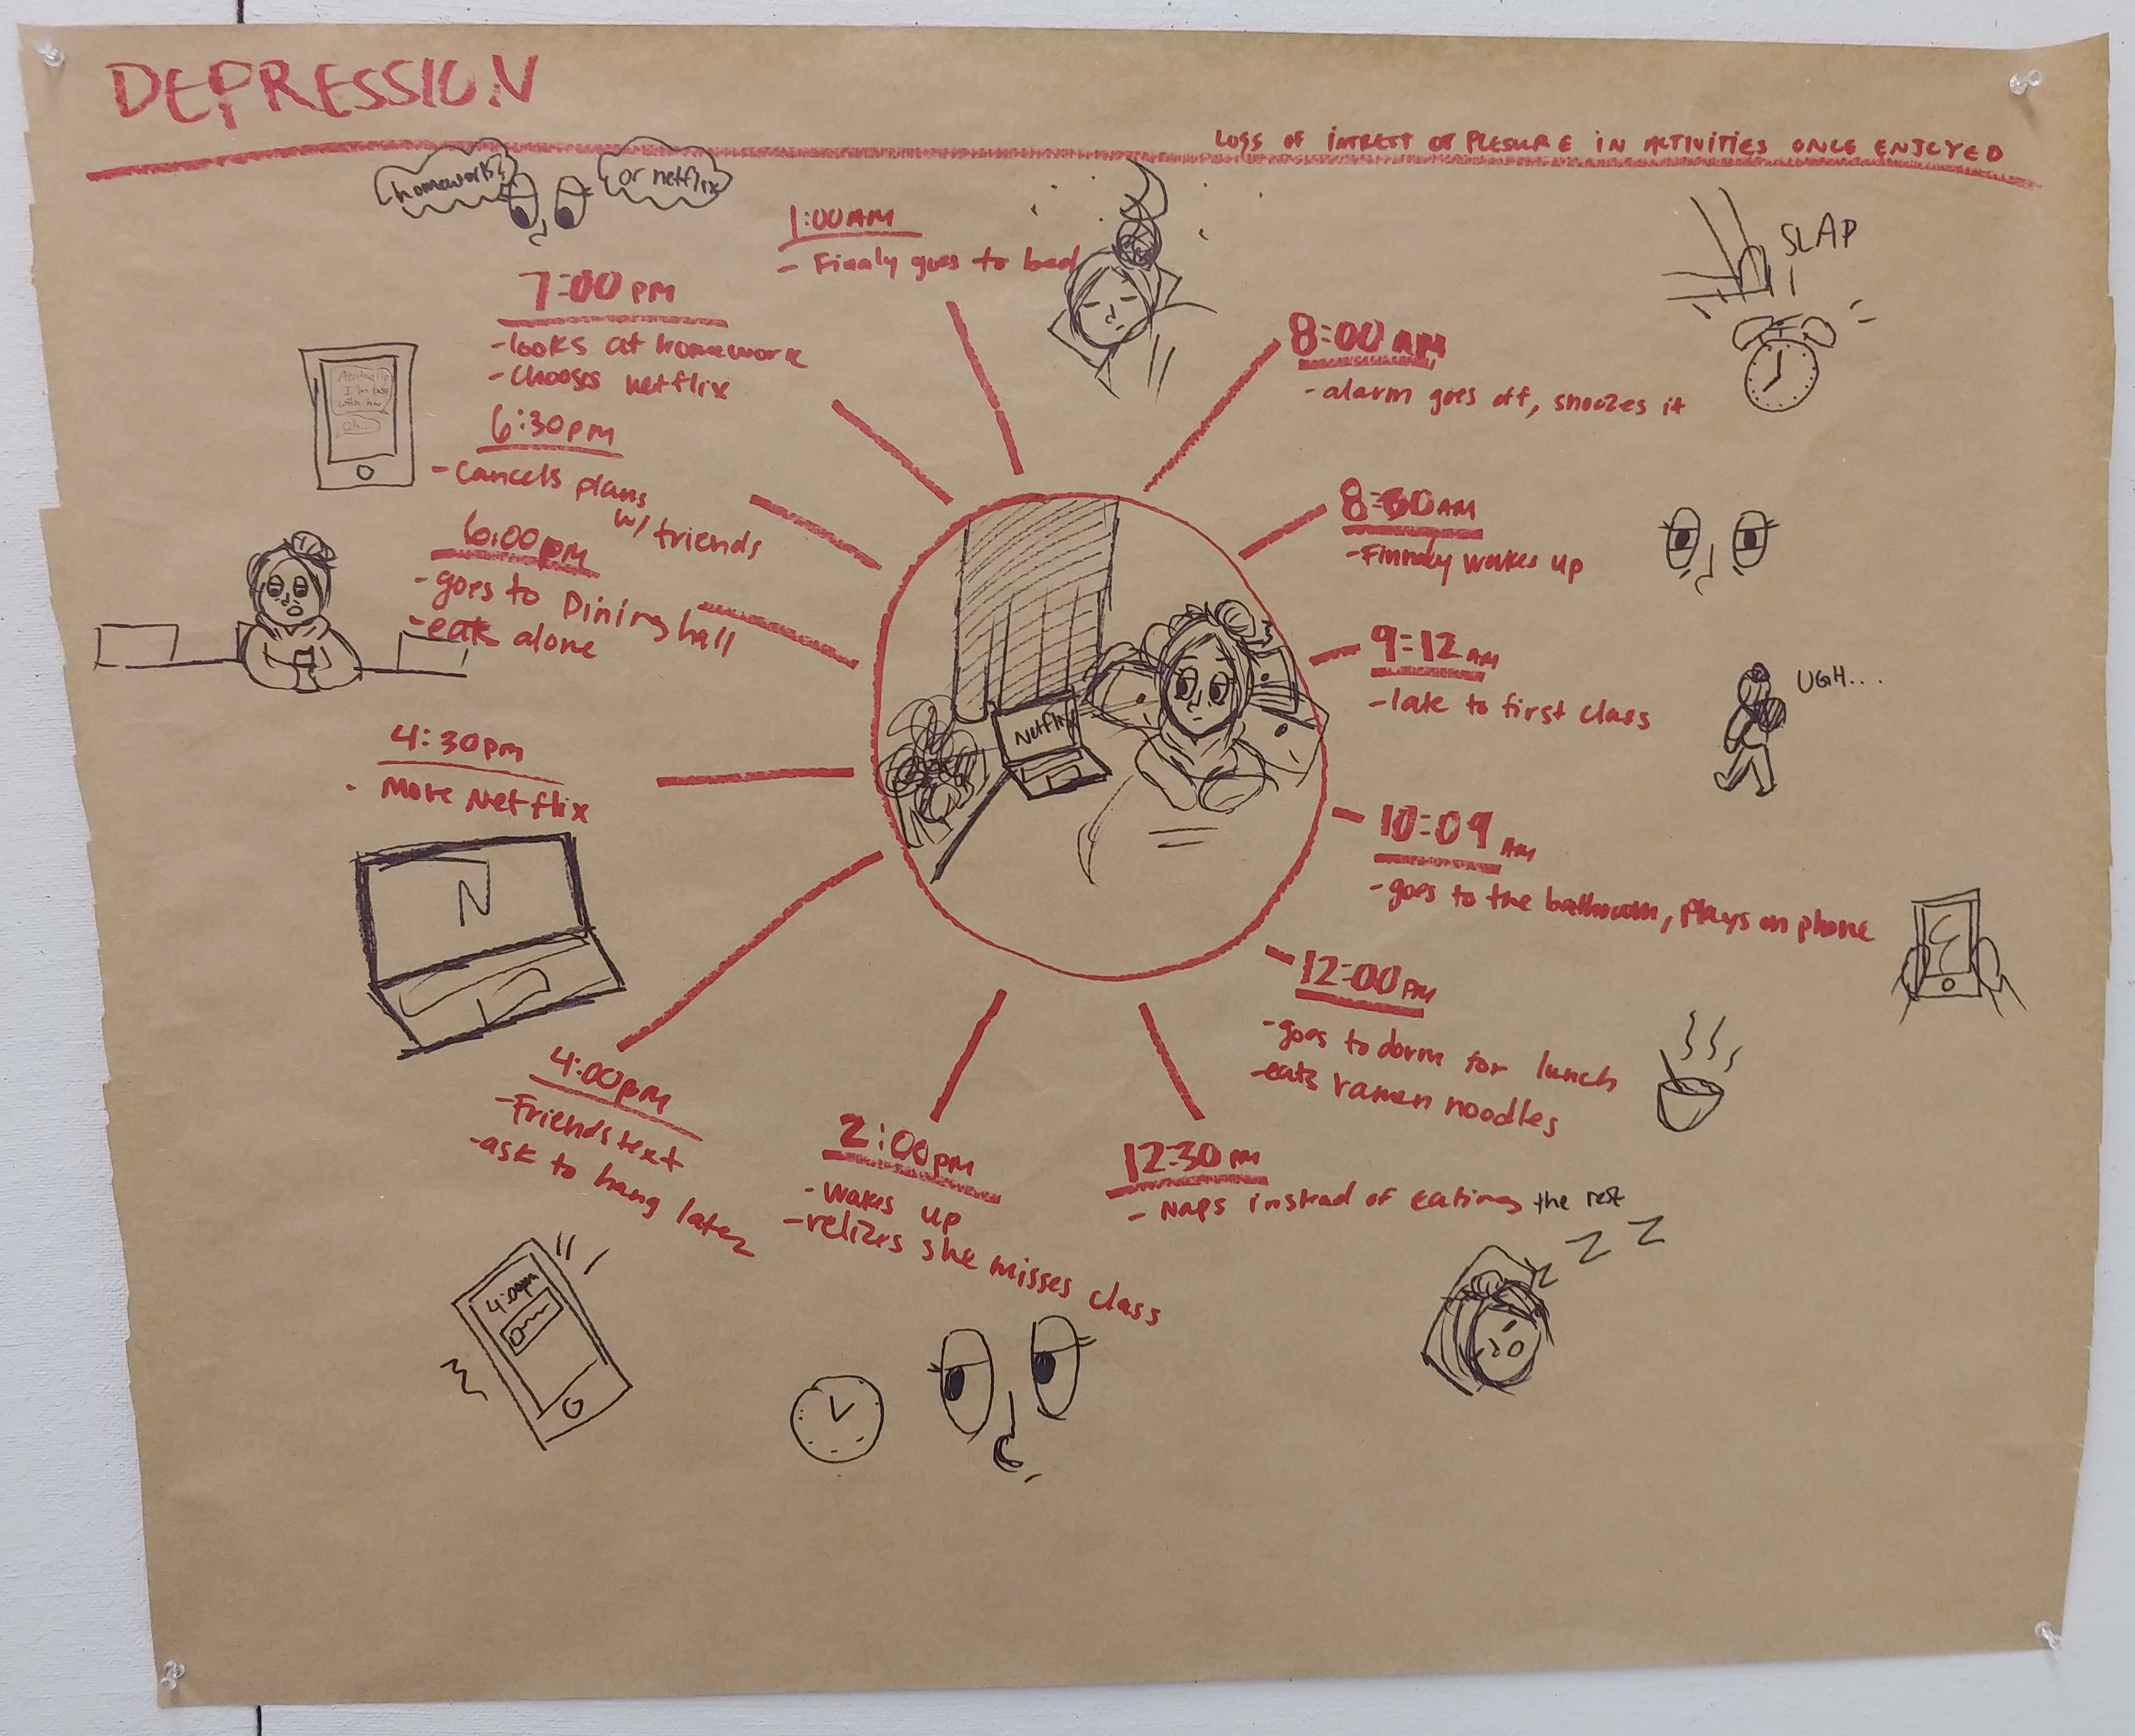 DEPRESSION
LOSS OF INTREST OF PLESURE IN ACTIVITIES ONCE ENJOYED
homework?
or netflix
1:00 AM
- Finaly goes to bed
SLAP
8:00 AM
- alarm goes off, snoozes it
8:30 AM
- Finnaly wakes up
9:12 AM
- late to first class
UGH...
10:09 AM
- goes to the bathroom, plays on phone
12:00 PM
- goes to dorm for lunch
- eats ramen noodles
12:30 PM
- Naps instead of eating the rest
Z Z Z
2:00 pm
- wakes up
- relizes she misses class
4:00 pm
- Friends text
- ask to hang later
4:00pm
4:30 pm
- More Netflix
N
6:00 pm
- goes to Dining hall
- eats alone
6:30 PM
- cancels plans
w/ friends
I'm
with hw
Oh...
7:00 PM
- looks at homework
- chooses netflix
Netflix